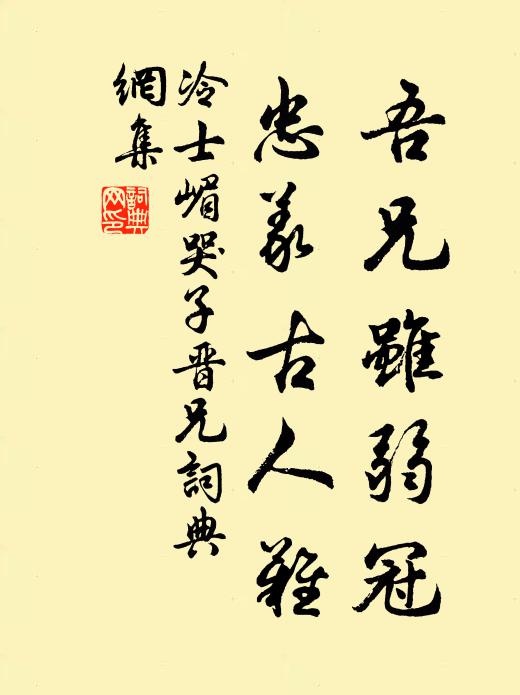 吾兄雖弱冠
忠義古人難
冷士嵋哭子晋兄詞典
網集
詞典
網印